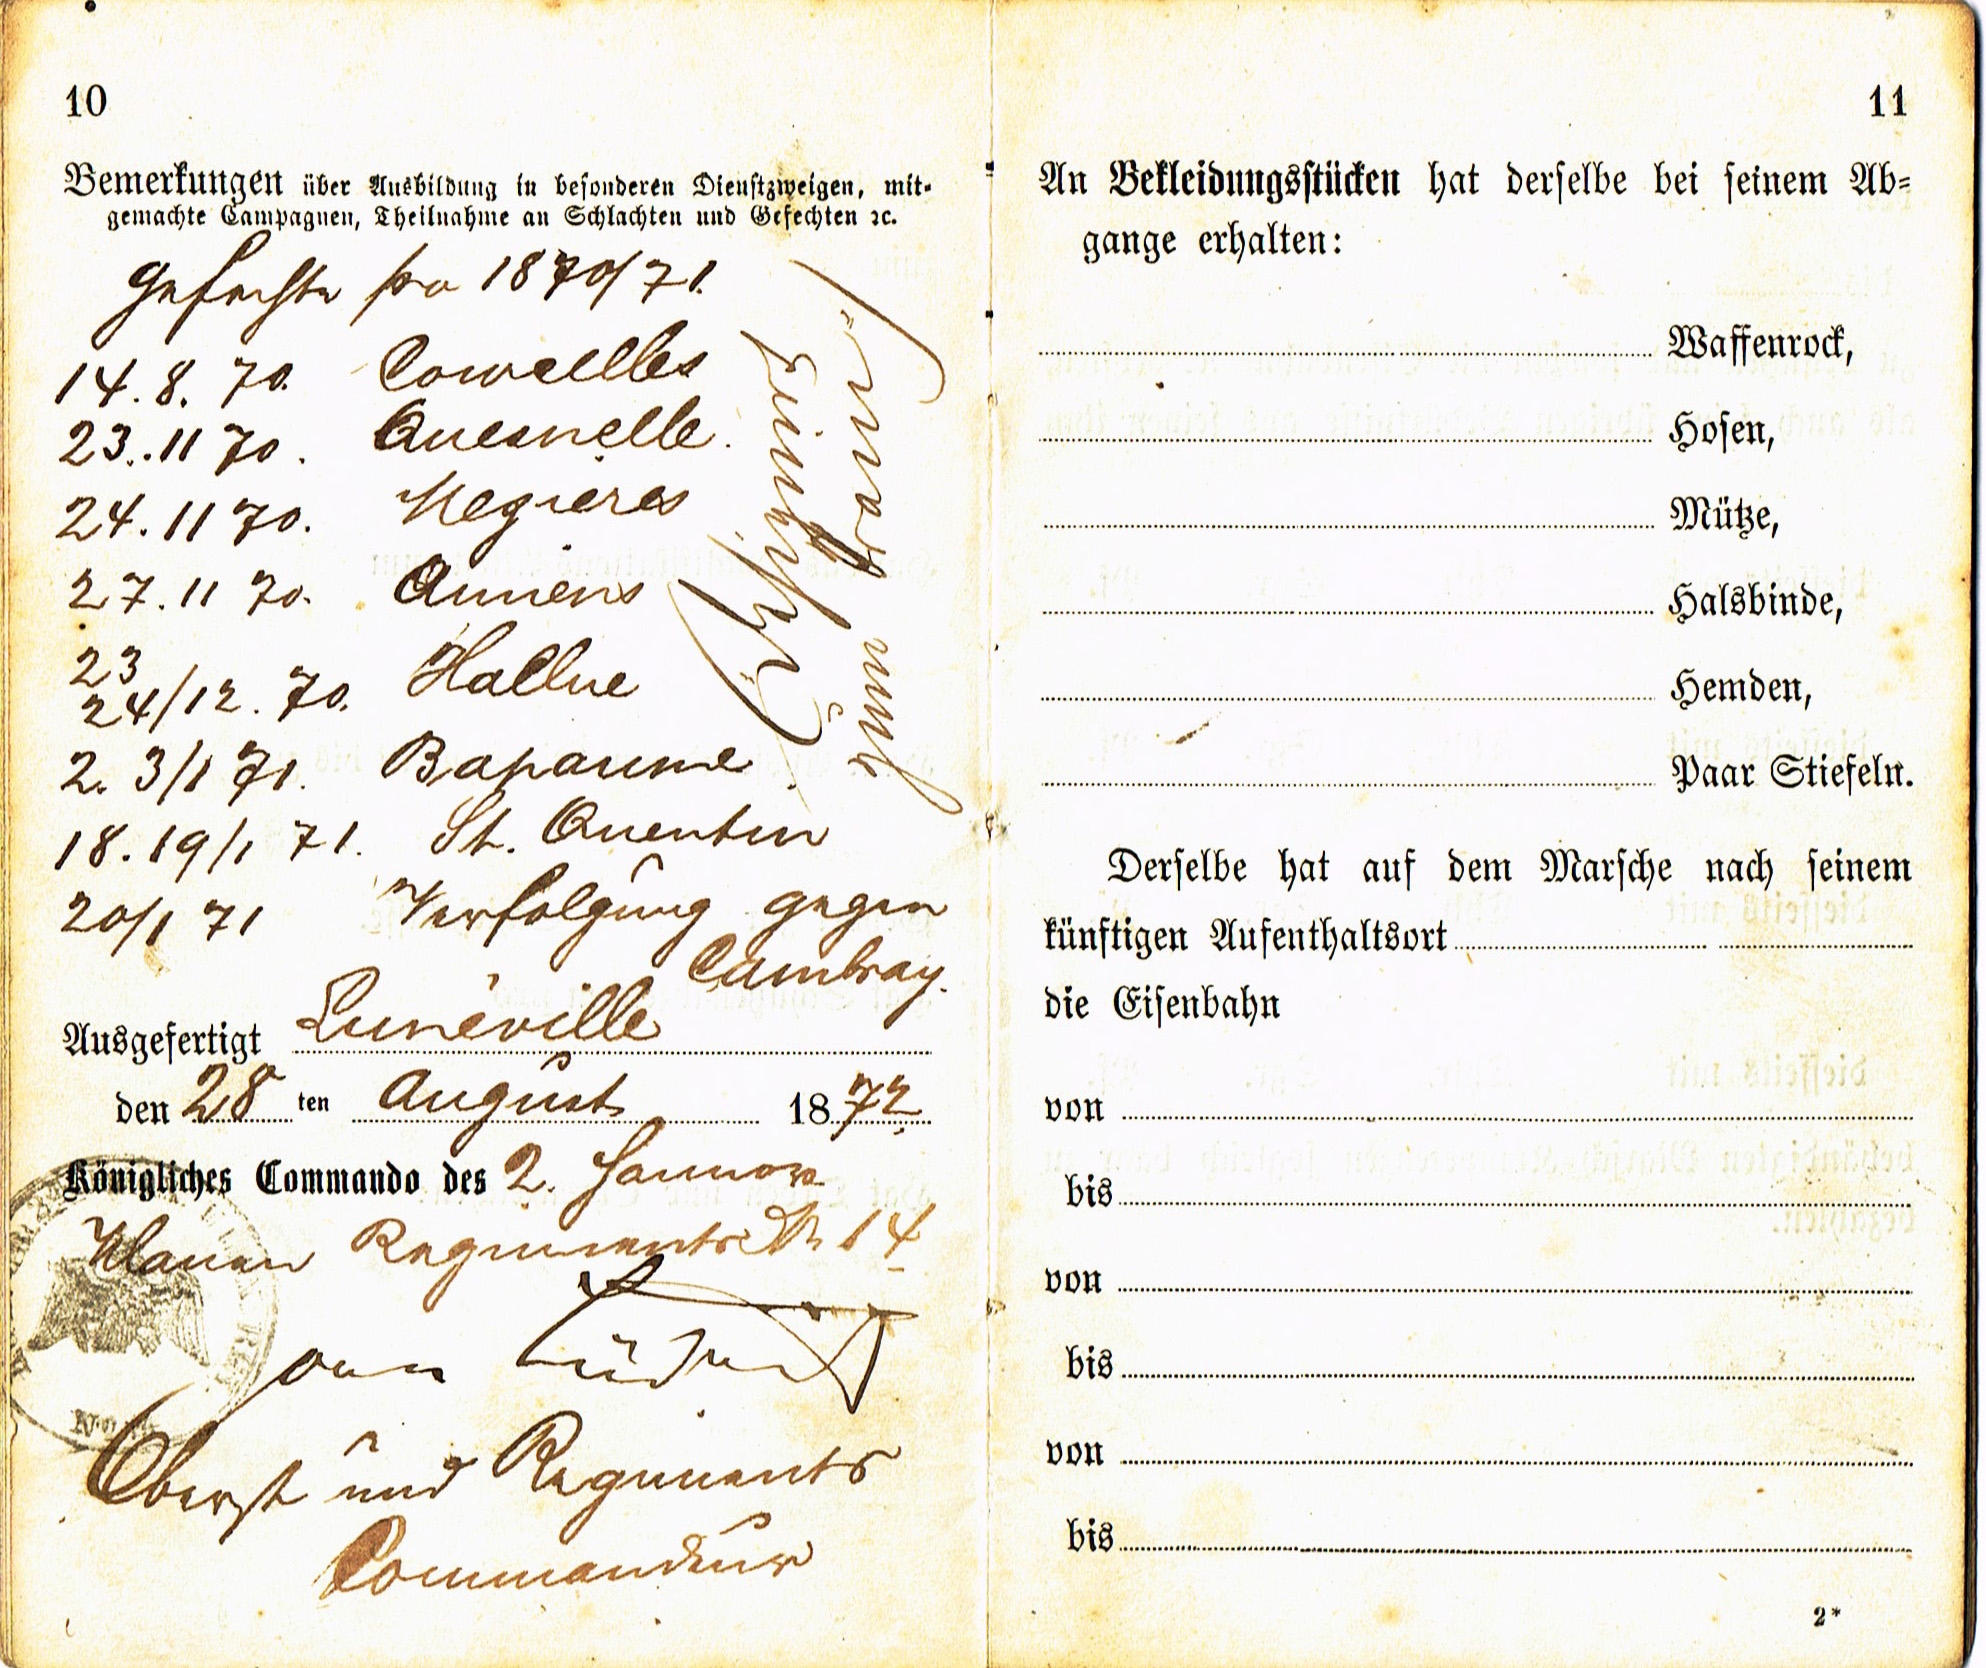 10
Bemerkungen über Ausbildung in besonderen Dienstzweigen, mit-
gemachte Campagnen, Theilnahme an Schlachten und Gefechten ꝛc.
Gefechte pro 1870/71.
14. 8. 70. Courcelles
23. 11 70. Quesnelle.
24. 11 70. Mezieres
27. 11 70. Amiens
23
24/12. 70. Hallue
2. 3/1 71. Bapaume.
18. 19/1 71. St. Quentin
20/1 71 Verfolgung gegen
Cambray.
Ausgefertigt Lunéville
den 28 ten August 1872
Königliches Commando des 2. Hannov.
Ulanen Regiments Nr 14
von
Oberst und Regiments
Commandeur
11
An Bekleidungsstücken hat derselbe bei seinem Ab-
gange erhalten:
Waffenrock,
Hosen,
Mütze,
Halsbinde,
Hemden,
Paar Stiefeln.
Derselbe hat auf dem Marsche nach seinem
künftigen Aufenthaltsort
die Eisenbahn
von
bis
von
bis
von
bis
2*